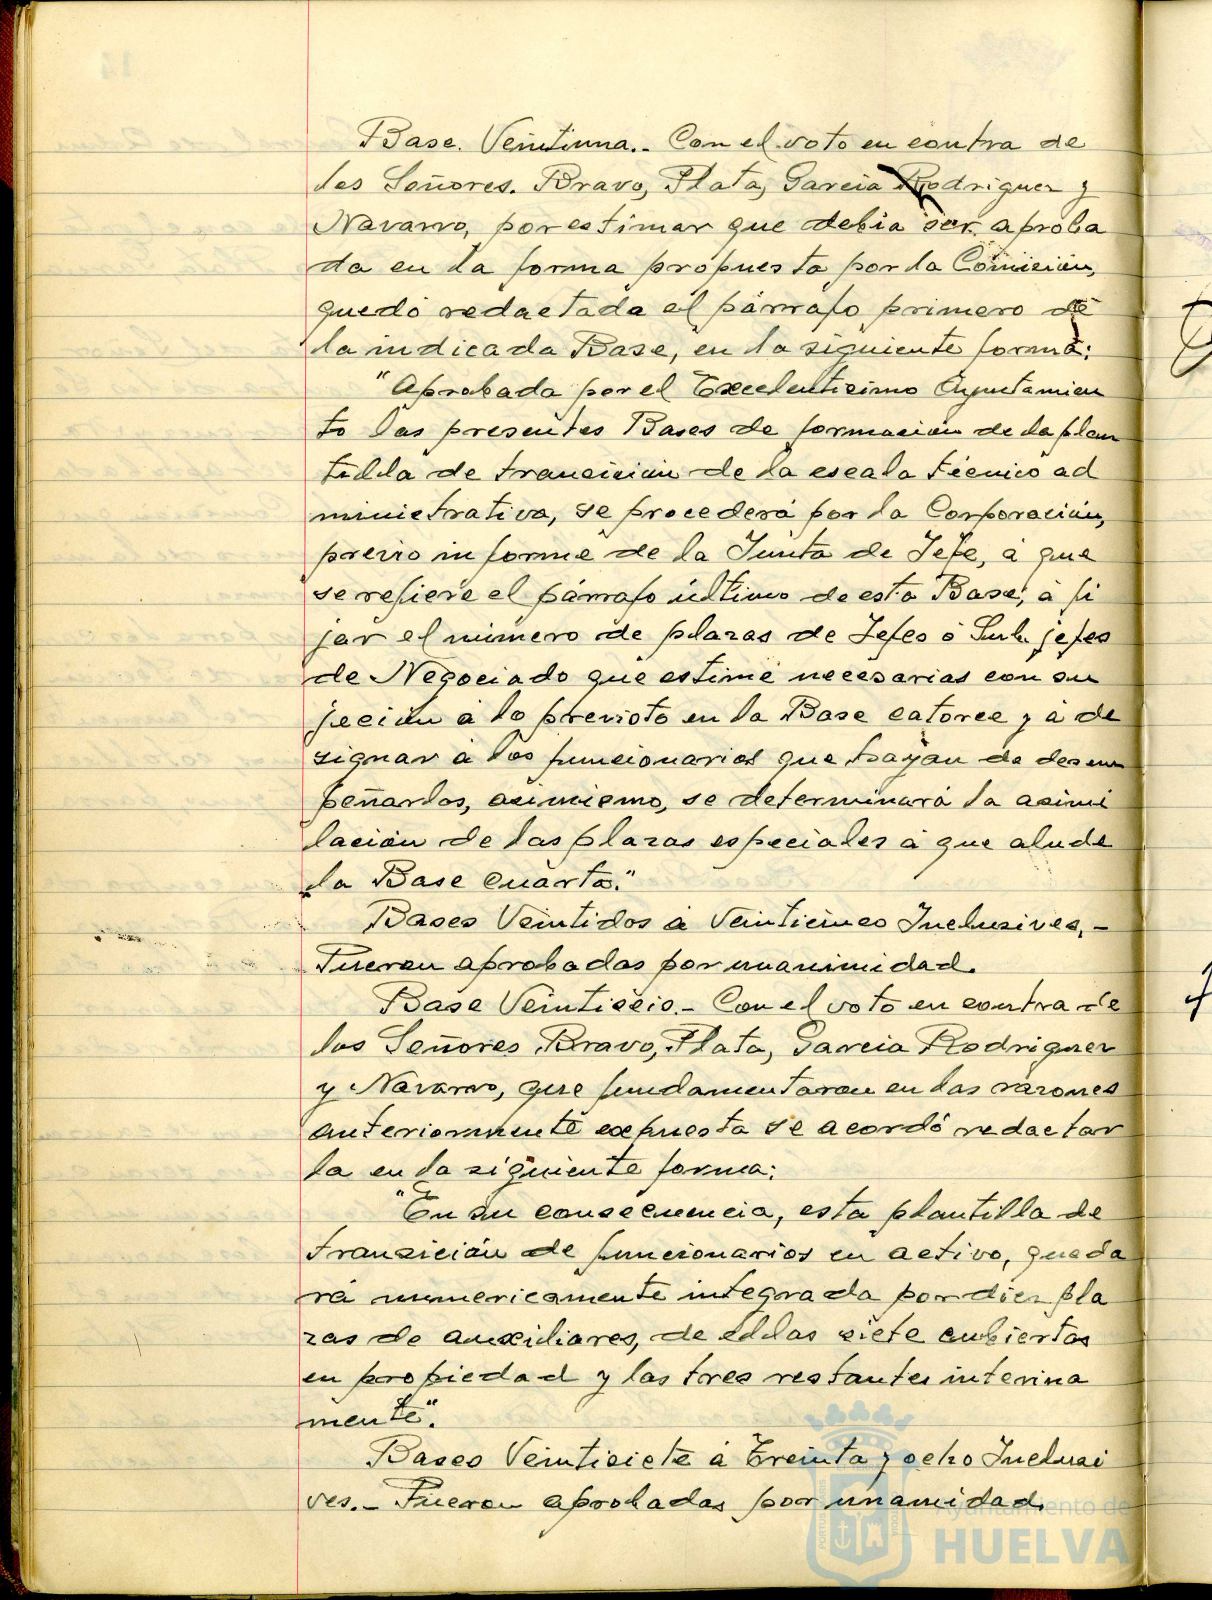 Base Veintiuna.- Con el voto en contra de
los Señores. Bravo, Plata, Garcia Rodriguez y
Navarro, por estimar que debia ser aproba
da en la forma propuesta por la Comisión,
quedó redactada el párrafo primero de
la indicada Base, en la siguiente forma:
"Aprobada por el Excelentisimo Ayuntamien
to las presentes Bases de formación de la plan
tilla de transición de la escala técnico ad
ministrativa, se procederá por la Corporación,
previo informe de la Junta de Jefe, á que
se refiere el párrafo último de esta Base, á fi
jar el número de plazas de Jefes ó Sub-jefes
de Negociado que estime necesarias con su
jeción á lo previsto en la Base catorce y á de
signar á los funcionarios que hayan de desem
peñarlos, asimismo, se determinará la asimi
lación de las plazas especiales á que alude
la Base cuarta."
Bases Veintidos á Veinticinco Inclusives.-
Fueron aprobadas por unanimidad.
Base Veintiseis.- Con el voto en contra de
los Señores Bravo, Plata, Garcia Rodriguez
y Navarro, que fundamentaron en las razones
anteriormente expuesta se acordó redactar
la en la siguiente forma:
"En su consecuencia, esta plantilla de
transición de funcionarios en activo, queda
rá numericamente integrada por diez pla
zas de auxiliares, de ellas siete cubiertas
en propiedad y las tres restantes interina
mente".
Bases Veintisiete á Treinta y ocho Inclusi
ves.- Fueron aprobadas por unamidad.
Ayuntamiento de
HUELVA